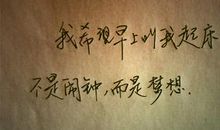 我希望早上叫我起床
不是闹钟,而是梦想.